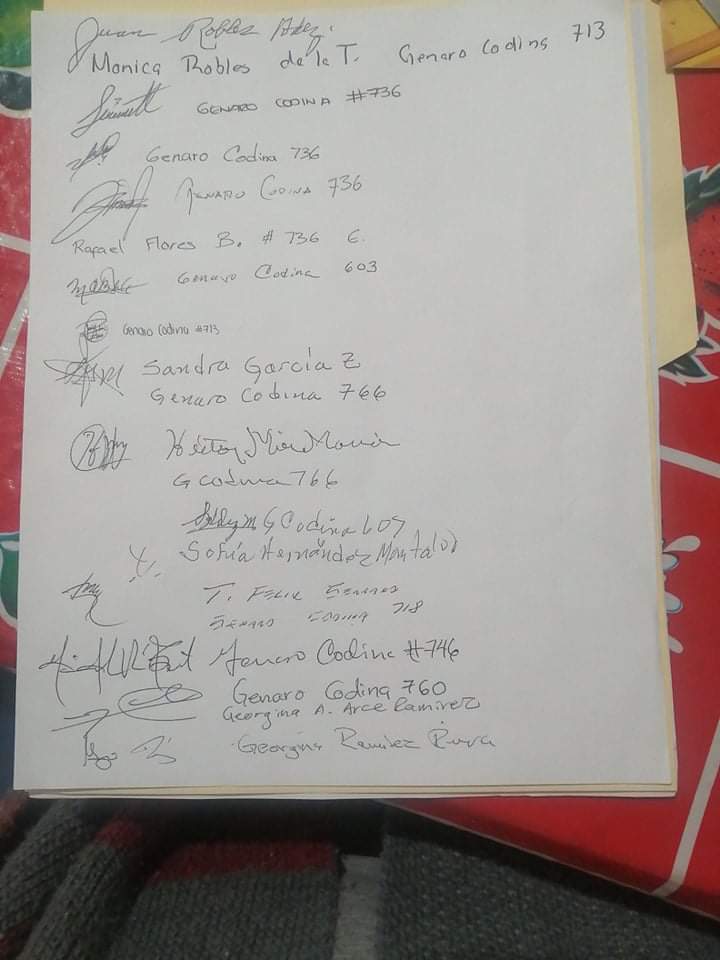 Juan Robles
Monica Robles de la T. Genaro Codina 713
GENARO CODINA #736
Genaro Codina 736
GENARO CODINA 736
Rafael Flores B. # 736 E.
Genaro Codina 603
Genaro Codina #713
Sandra García Z
Genaro Codina 766
Héctor
G codina 766
G Codina 609
Sofía Hernández Montalvo
T. FELIX SERRANO
GENARO CODINA 718
Genaro Codina #746
Genaro Codina 760
Georgina A. Arce Ramirez
Georgina Ramirez